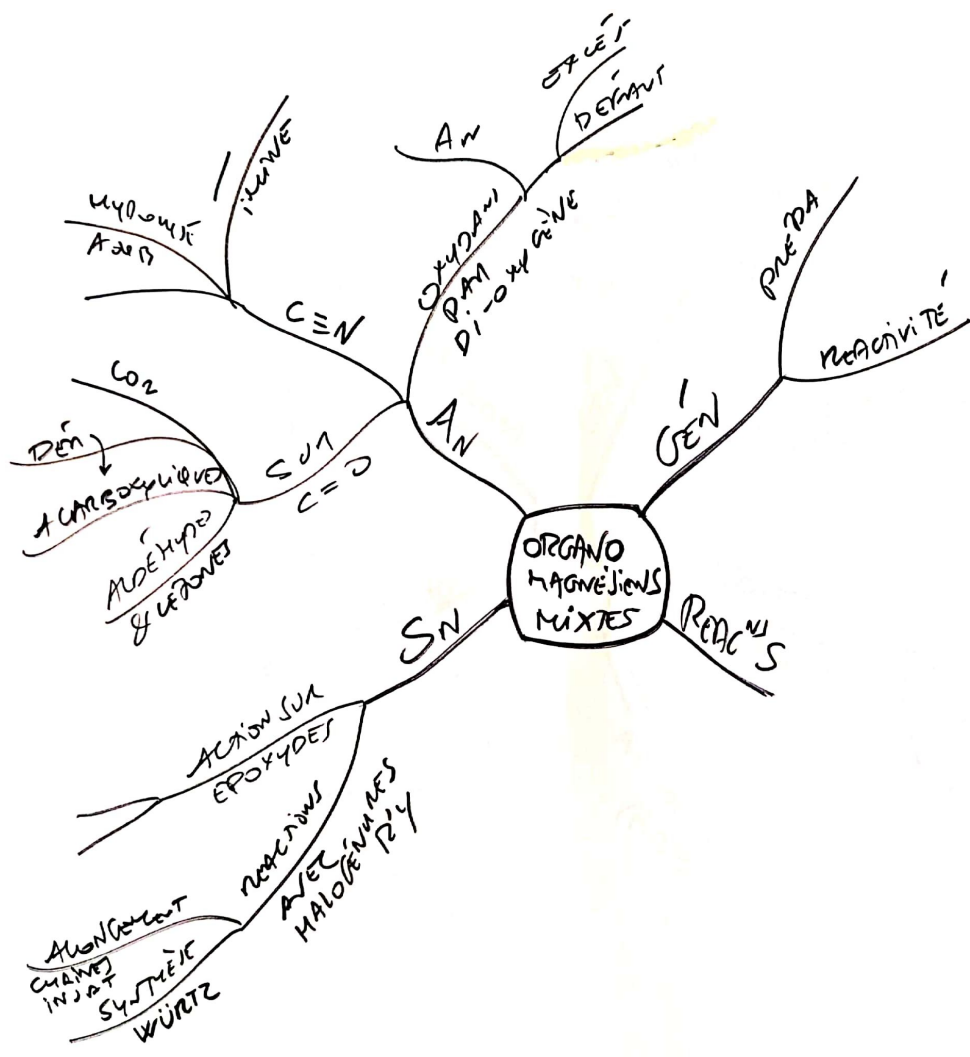 ORGANO
MAGNÉSIENS
MIXTES
GÉN
PRÉPA
RÉACTIVITÉ
RÉAC^NS
AN
OXYDANT
PAR
DI-OXYGÈNE
AN
EXCÈS
DÉFAUT
C≡N
IMINE
HYDROLYSE
SUR
C=O
CO2
DÉR
A CARBOXYLIQUES
ALDÉHYDES
& CÉTONES
SN
ACTION SUR
EPOXYDES
RÉACTIONS
AVEC
HALOGÉNURES
R'Y
ALLONGEMENT
CHAÎNES
INSAT
SYNTHÈSE
WÜRTZ